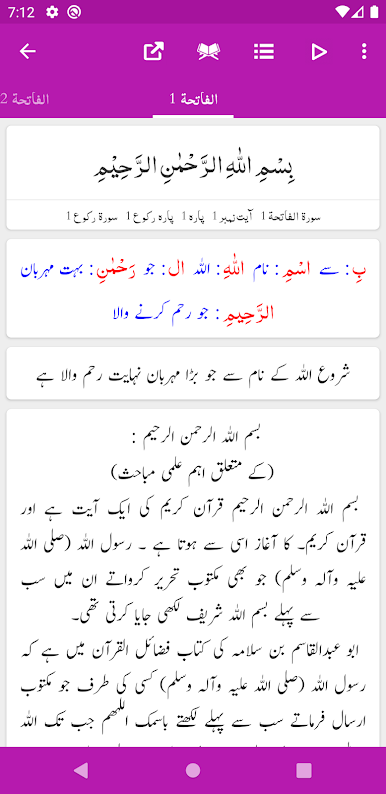 7:12
الفاتحة 1
الفاتحة 2
بِسْمِ اللهِ الرَّحْمٰنِ الرَّحِيْمِ
سورة الفاتحة 1 آیت نمبر 1 پارہ 1 پارہ رکوع 1 سورۃ رکوع 1
بِ : سے اسْمِ : نام اللهِ : اللہ ال : جو رَحْمٰنِ : بہت مہربان
الرَّحِيمِ : جو رحم کرنے والا
شروع اللہ کے نام سے جو بڑا مہربان نہایت رحم والا ہے
بسم اللہ الرحمن الرحیم :
(کے متعلق اہم علمی مباحث)
بسم اللہ الرحمن الرحیم قرآن کریم کی ایک آیت ہے اور
قرآن کریم۔ کا آغاز اسی سے ہوتا ہے ۔ رسول اللہ (صلی اللہ
علیہ وآلہ وسلم) جو بھی مکتوب تحریر کرواتے ان میں سب
سے پہلے بسم اللہ شریف لکھی جایا کرتی تھی۔
ابو عبدالقاسم بن سلامہ کی کتاب فضائل القرآن میں ہے کہ
رسول اللہ (صلی اللہ علیہ وآلہ وسلم) کسی کی طرف جو مکتوب
ارسال فرماتے سب سے پہلے لکھتے باسمک اللھم جب تک اللہ